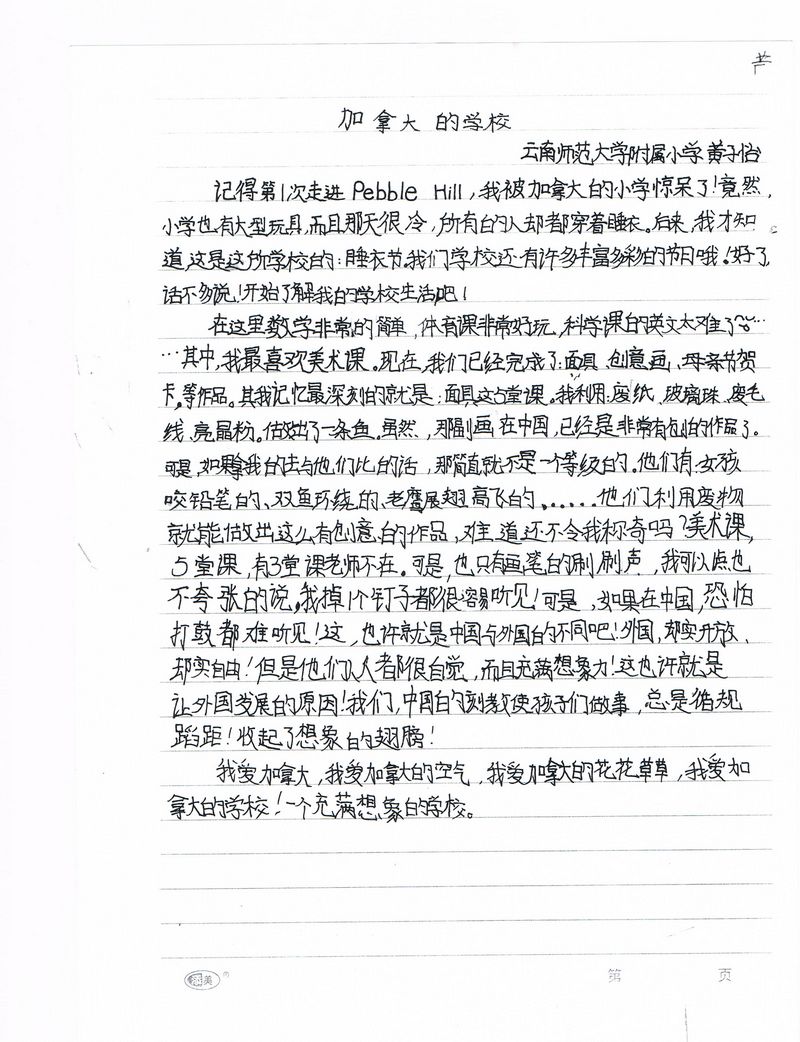 加拿大的学校
云南师范大学附属小学 黄子怡
记得第1次走进 Pebble Hill，我被加拿大的小学惊呆了！竟然，
小学也有大型玩具，而且那天很冷，所有的人却都穿着睡衣。后来，我才知
道，这是这所学校的：睡衣节。我们学校还有许多丰富多彩的节日哦！好了，
话不多说！开始了解我的学校生活吧！
在这里数学非常的简单，体育课非常好玩，科学课的英文太难了~…
…其中，我最喜欢美术课。现在，我们已经完成了：面具、创意画、母亲节贺
卡，等作品。其我记忆最深刻的就是：面具这5堂课。我利用：废纸、玻璃珠、废毛
线、亮晶粉。做出了一条鱼。虽然，那副画在中国，已经是非常有创的作品了。
可是，如果拿我的去与他们比的话，那简直就不是一个等级的。他们有：女孩
咬铅笔的、双鱼环绕的、老鹰展翅高飞的，……他们利用废物
就能做出这么有创意的作品，难道还不令我称奇吗？美术课，
5堂课，有3堂课老师不在。可是，也只有画笔的刷刷声，我可以点也
不夸张的说，我掉1个钉子都很容易听见！可是，如果在中国，恐怕
打鼓都难听见！这，也许就是中国与外国的不同吧！外国，却实开放、
却实自由！但是他们人人都很自觉，而且充满想象力！这也许就是
让外国发展的原因！我们，中国的刻教使孩子们做事，总是循规
蹈距！收起了想象的翅膀！
我爱加拿大，我爱加拿大的空气，我爱加拿大的花花草草，我爱加
拿大的学校！一个充满想象的学校。
第 页